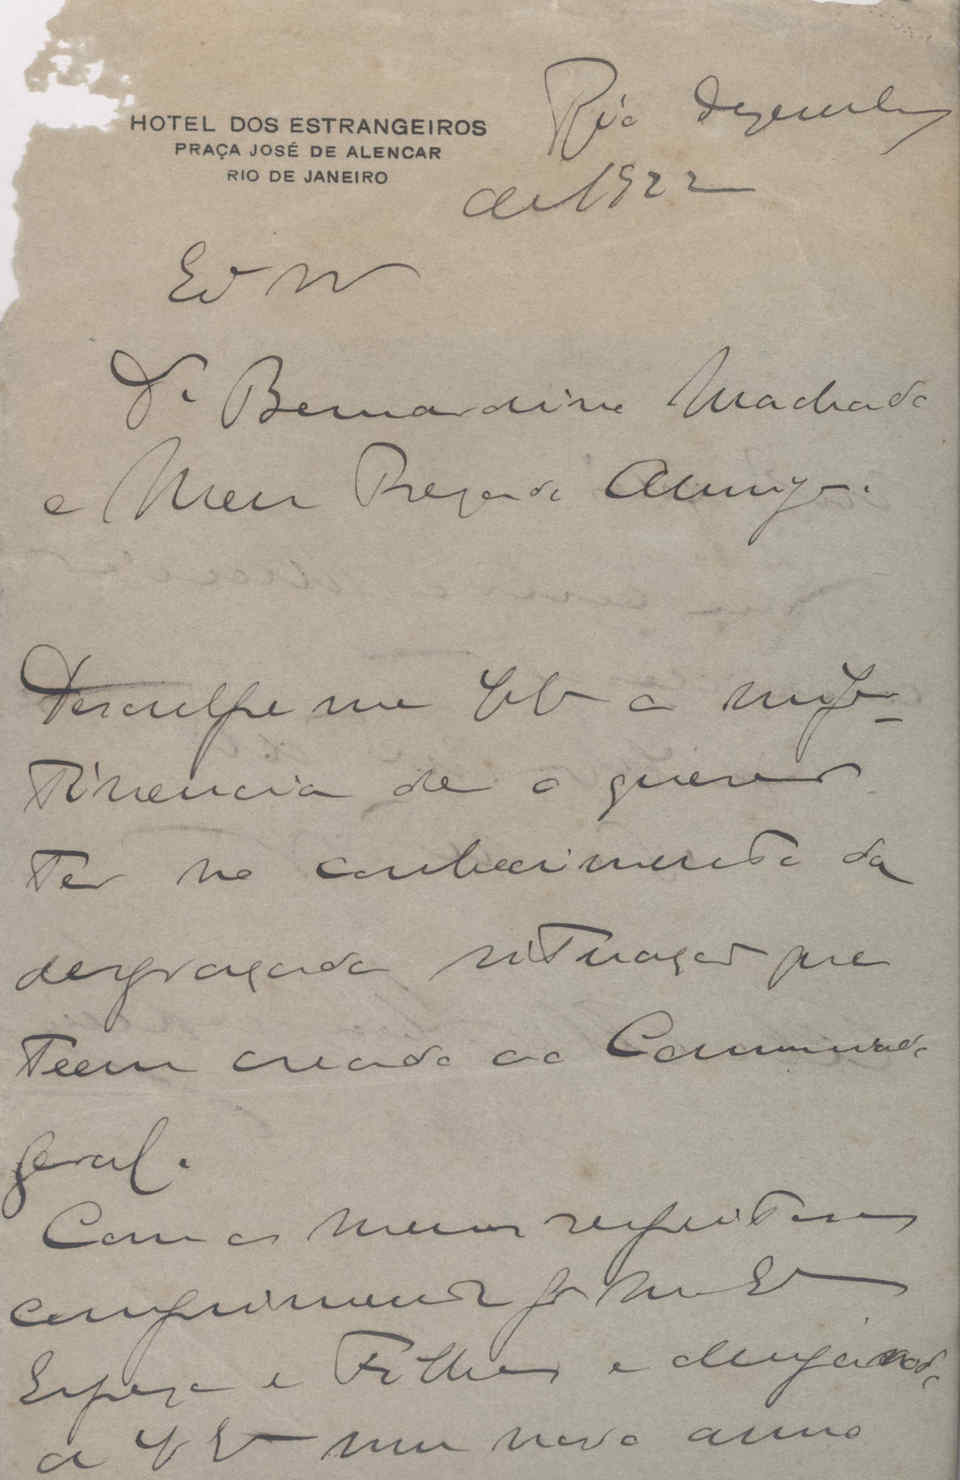 HOTEL DOS ESTRANGEIROS
PRAÇA JOSÉ DE ALENCAR
RIO DE JANEIRO
Rio Dezembro
de 1922
Dr Bernardino Machado
e Meu Prezado Amigo.
Desculpe me a
tinencia de o querer
ter no conhecimento da
desgraçada situação que
teem creado ao Commissado
geral.
Com os meus respeitosos
comprimentos pr Ma Exa
Espoza e Filhas e dezejando
a V Exa um novo anno